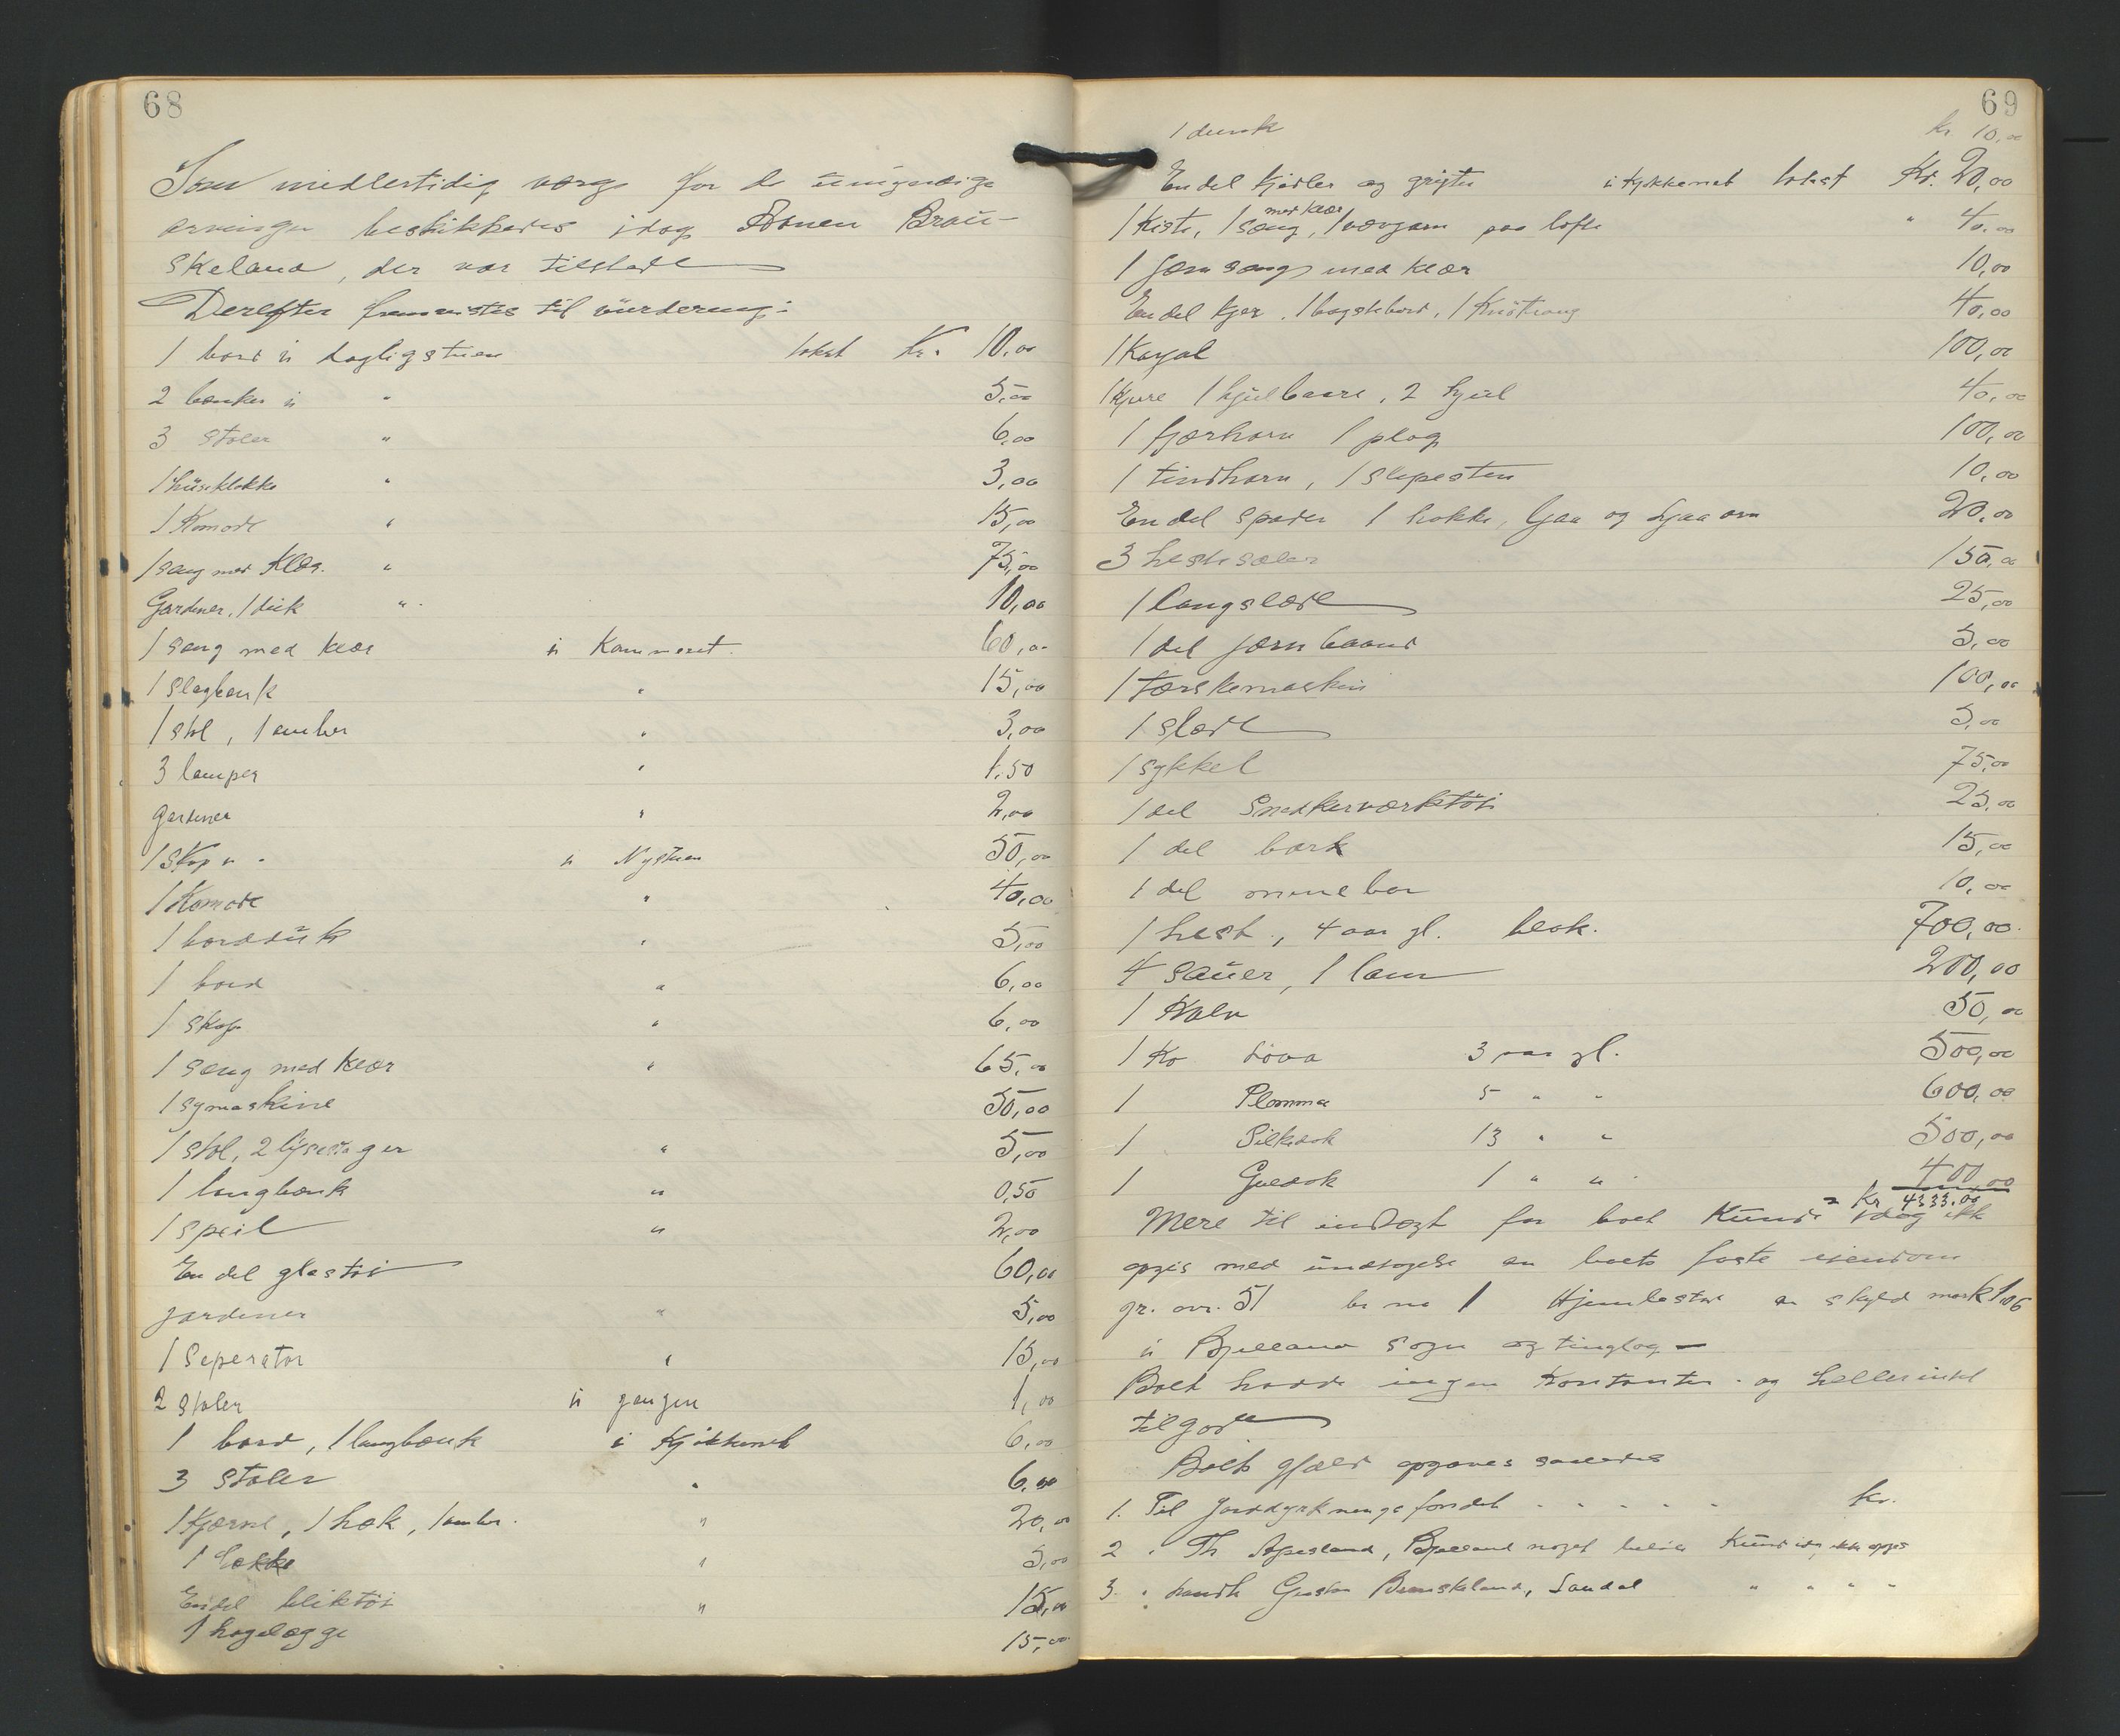 68
Som midlertidig verge for de umyndige
arvinger beskikkedes idag Brau-
skeland, der var tilstede
Derefter fremvistes til vurdering:
1 bord i dagligstuen takst Kr. 10,00
2 bænker i " 5,00
3 stoler " 6,00
1 husklokke " 3,00
1 Komode " 15,00
1 seng med klær. " 75,00
Gardiner, 1 duk " 10,00
1 seng med klær i Kammeret. 60,00
1 slagbenk " 15,00
1 stol, 1 ambar " 3,00
3 lamper " 1.50
gardiner " 2,00
1 Skap i Nystuen 50,00
1 Komode " 40,00
1 bordduk " 5,00
1 bord " 6,00
1 skap " 6,00
1 seng med klær " 65,00
1 symaskine 50,00
1 stol, 2 lysestager " 5,00
1 langbænk " 0,50
1 speil " 2,00
En del glastøi 60,00
gardiner " 5,00
1 Seperator " 15,00
2 stoler i gangen 1,00
1 bord, 1 langbænk i Kjøkkenet 6,00
3 stoler " 6,00
1 Kjærne, 1 bøk, 1 ambar. " 20,00
1 " 5,00
Endel bliktøi " 15,00
1 15,00
69
1 dunk kr. 10,00
En del kjedler og gryter i kjøkkenet takst Kr. 20,00
med klær
1 Kiste, 1 seng, 1 vævgarn paa loftet " 40,00
1 Jernseng med klær 10,00
En del kjer, 1 bagstebord, 40,00
1 Karjol 100,00
1 Kjerre 1 hjulbaare, 2 hjul 40,00
1 fjærharv 1 plog 100,00
1 tindharv, 1 slipesten 10,00
En del spader 1 hakke, ljaa og ljaaorv 20,00
3 hesteseler 150,00
1 langslæde 25,00
1 del jernbaand 5,00
1 tærskemaskin 100,00
1 slæde 5,00
1 sykkel 75,00
1 del Snedkerværktøi 25,00
1 del bark 15,00
1 del minebor 10,00
1 hest, 4 aar gl. blak. 700,00
4 sauer, 1 lam 200,00
1 Kalv 50,00
1 Ko Løva 3 aar gl. 500,00
1 Plomma 5 " " 600,00
1 Silkedok 13 " " 500,00
1 Guldok 1 " " 400,00
= Kr 4333.00
Mere til indtægt for boet kunde idag ikke
opgis med undtagelse av boets faste eiendom
gr. nr. 51 br no 1 av skyld mark 1,06
i Bjelland sogn og tinglag —
Boet hadde ingen kontanter og heller intet
tilgode
Boets gjæld opgaves saaledes
1. Til Jorddyrkningsfondet . . . . . kr.
2 " Th Apesland, Bjelland noget beløb kunde ikke opgis
3. " Brauskeland, Laudal " " " "